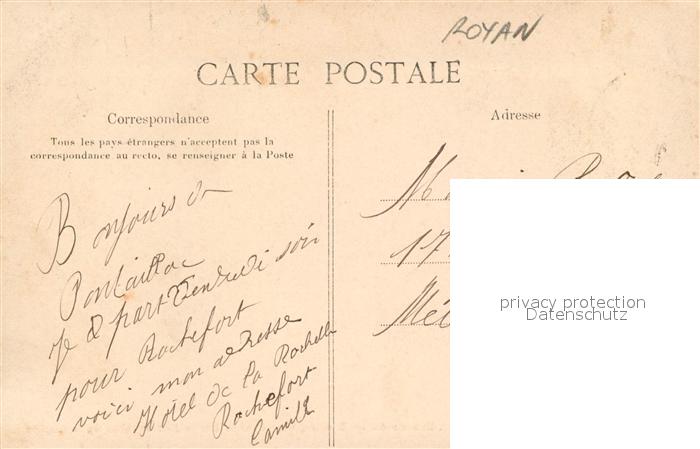 ROYAN
CARTE POSTALE
Correspondance
Tous les pays étrangers n'acceptent pas la
correspondance au recto, se renseigner à la Poste
Bonjours de
Pontaillac
Je part Vendredi soir
pour Rochefort
voici mon adresse
Hôtel de La Rochelle
Rochefort
Camille
Adresse
17
Mé
privacy protection
Datenschutz